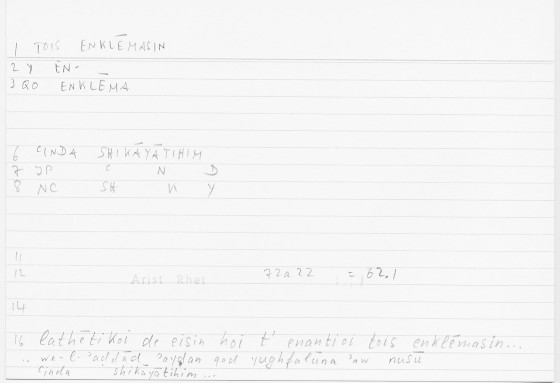 1 TOIS ENKLĒMASIN
2 Y ĒN-
3 QO ENKLĒMA
6 ʿINDA SHIKĀYĀTIHIM
7 JP ʿ N D
8 NC SH K Y
11
12 Arist Rhet 72a22 = 62.1
14
16 lathētikoi de eisin hoi t' enantioi tois enklēmasin...
.. wa-l-ʾaḍdād ʾayḍan qad yughfalūna ʾaw nusū
ʿinda shikāyātihim ...